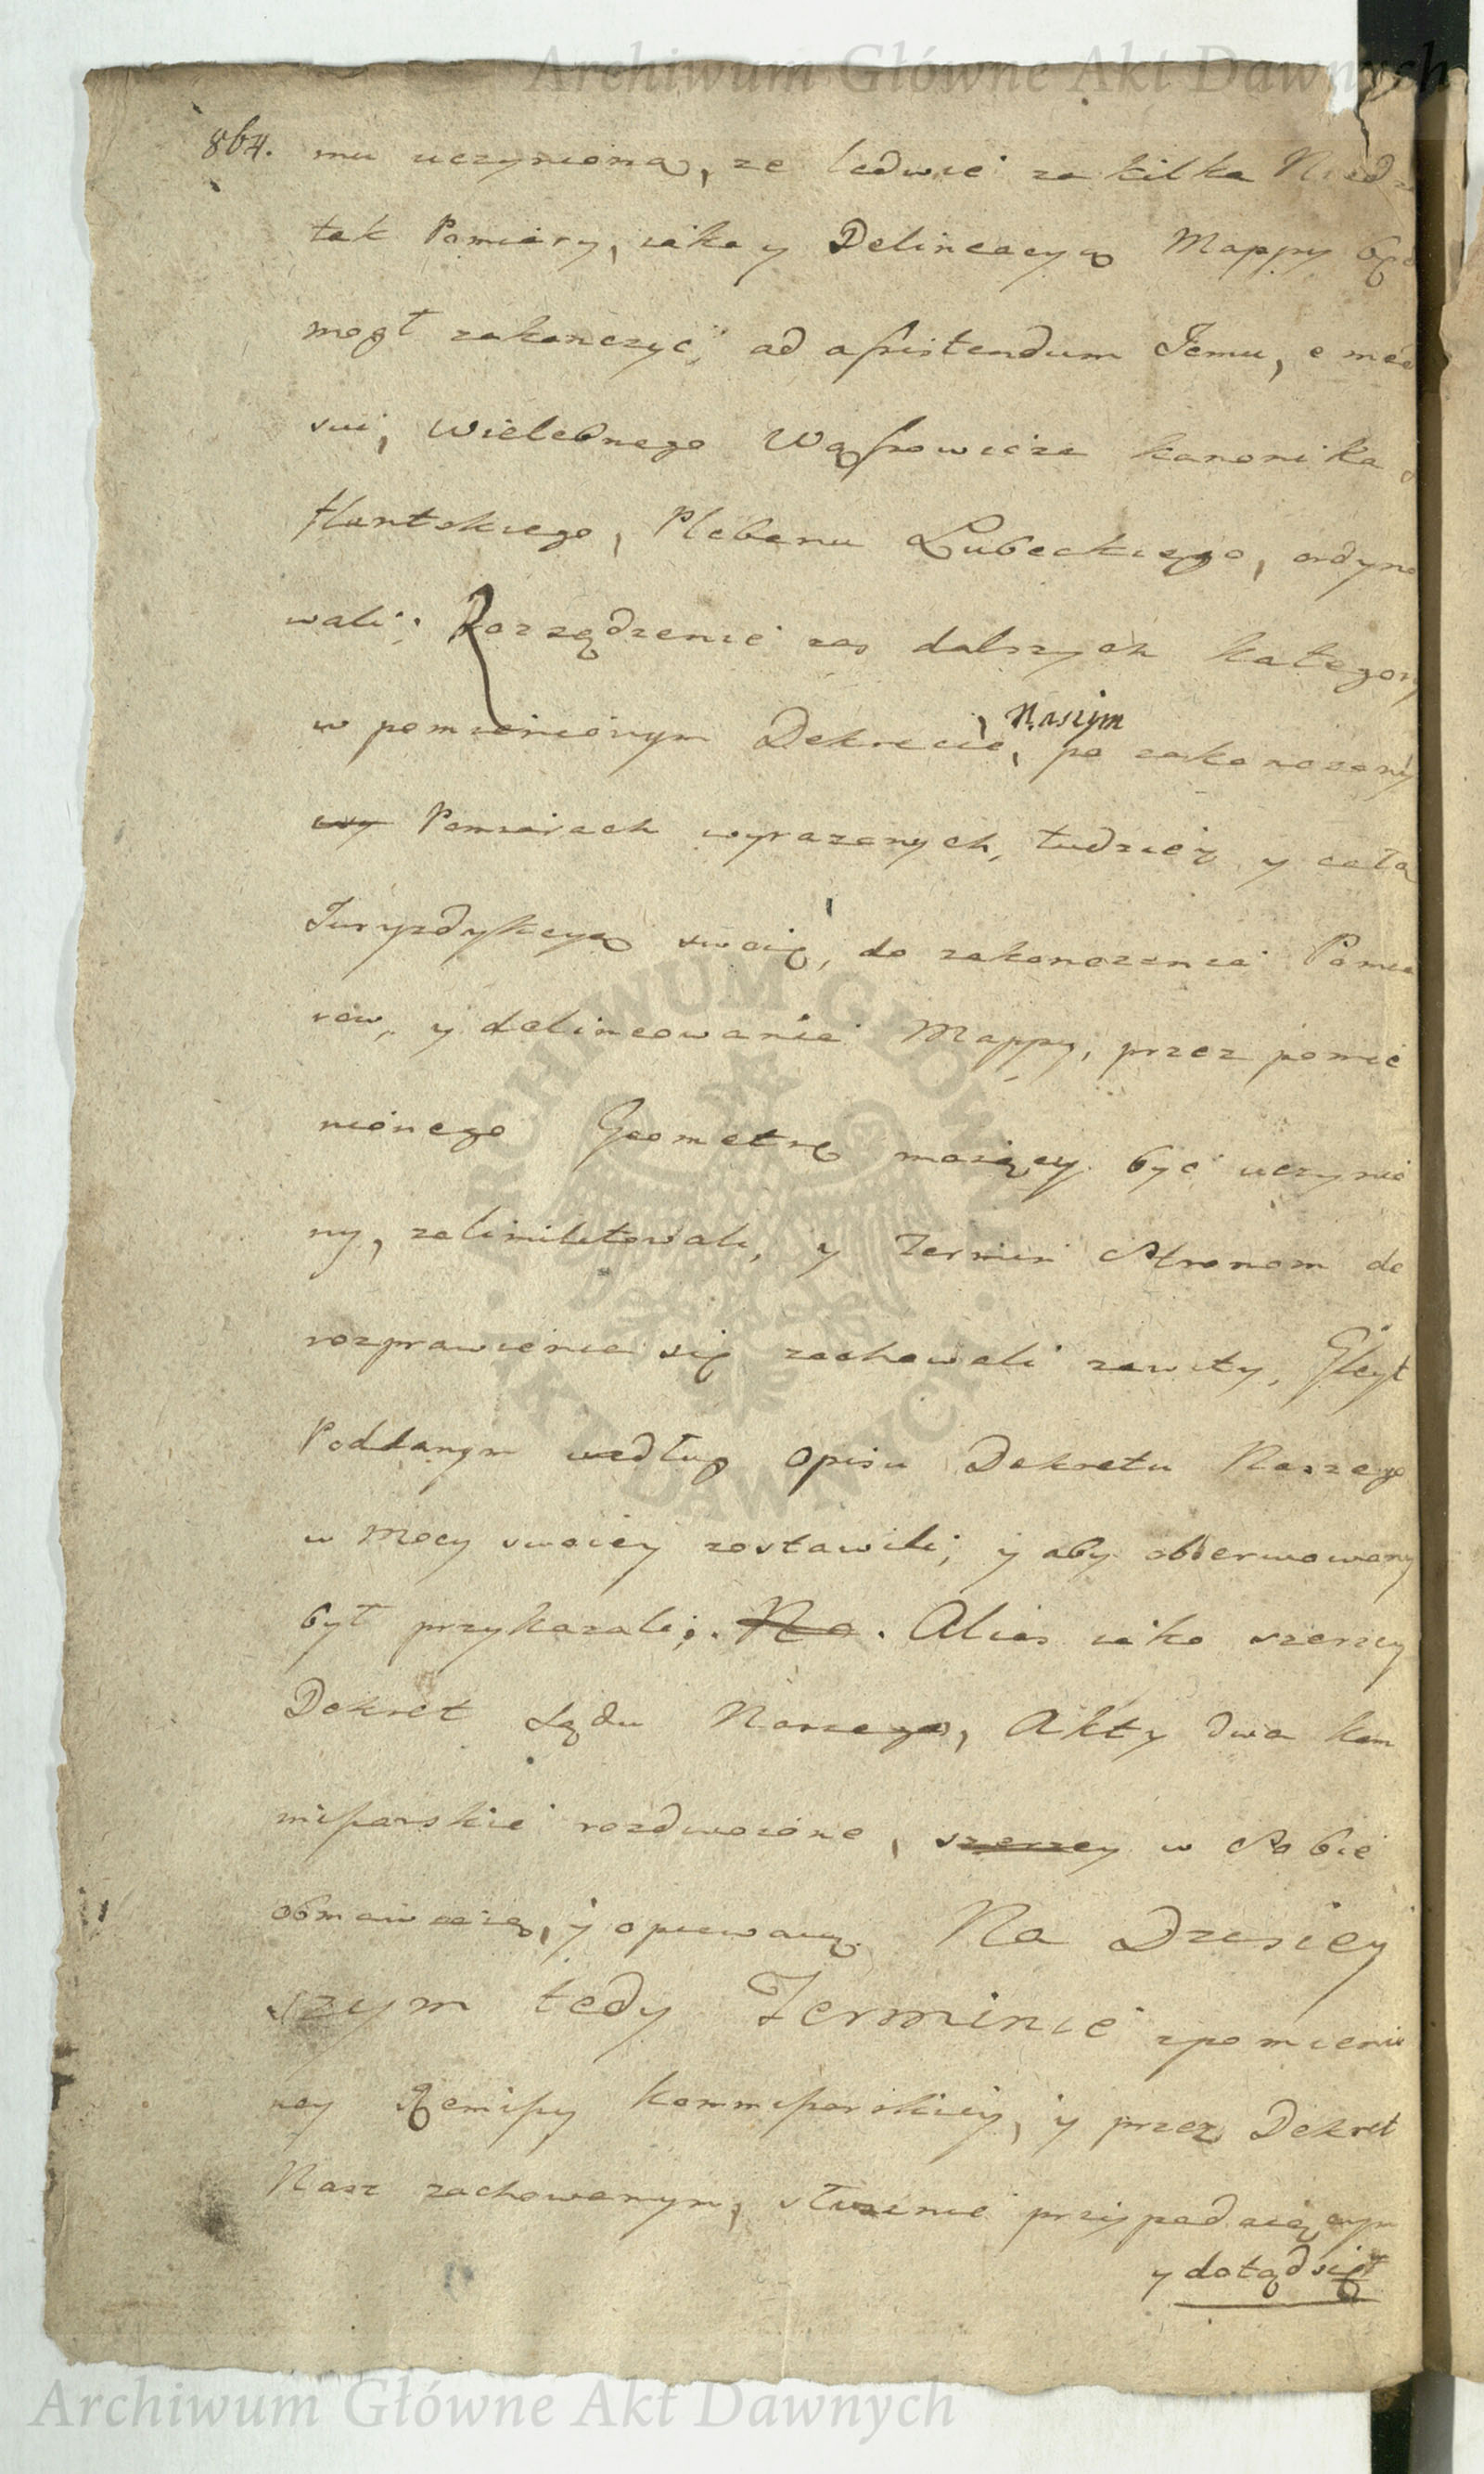 Archiwum Główne Akt Dawnych
864. mu uczyniona, ze ledwie za kilka Niedz
tak Pomiary, iako y Delineacyą Mappy będ
mogł zakonczyć, ad assistendum Jemu, e med
sui, Wielebnego Wąssowicza kanonika
flantskiego, Plebana Lubeckiego, ordyno
wali; Rozządzenie zas dalszych kategory
w pomienionym Dekrecie, Naszym po zakonczony
wy Pomiarach wyrazonych, tudziez y całą
Juryzdykcyą swoię, do zakonczenia Pomia
row, y delineowania Mappy, przez pomie
nionego Geometrę maiący być uczynio
ny, zalimitowali, y Termin Stronom do
rozprawienia się zachowali zawity, Gleyt
Poddanym według Opisu Dekretu Naszego
w mocy swoiey zostawili, y aby obserwowany
był przykazali; Na. Alias iako szerzey
Dekret Sądu Naszego, Akty dwa kom
missarskie rozdwoione, szerzey w Sobie
obmawiaią, y opiewaią. Na Dzisiey
szym tedy Terminie zpomienio
ney Remissy kommissarskiey, y przez Dekret
Nasz zachowanym, słusznie przypadaiącym
y dotąd się
ARCHIWUM GŁÓWNE AKT DAWNYCH
Archiwum Główne Akt Dawnych